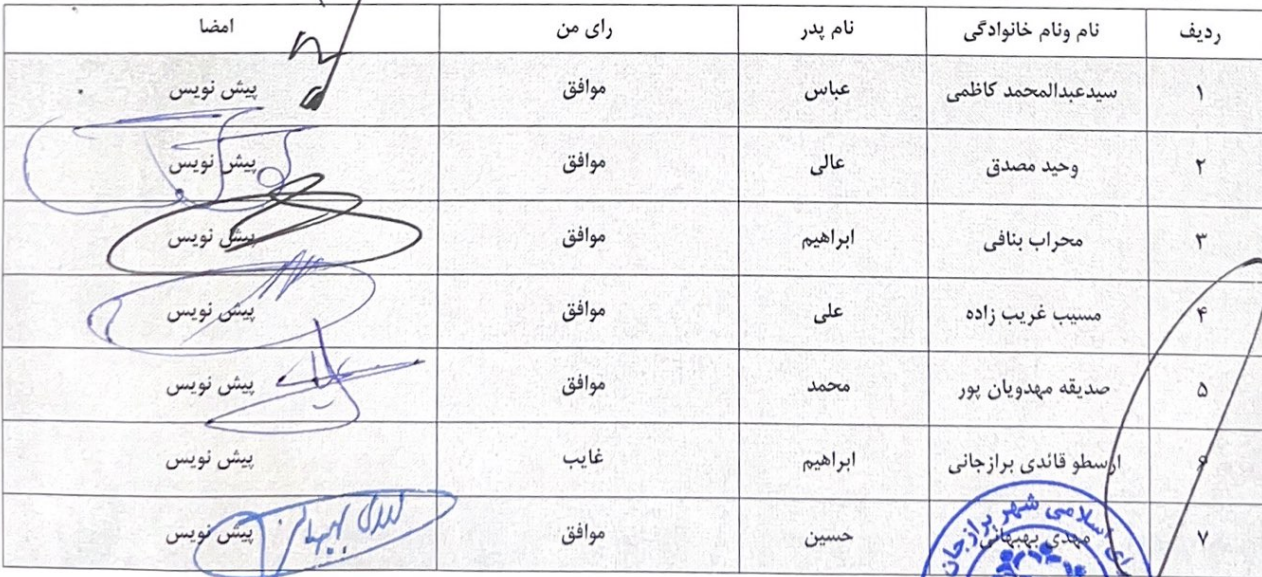 ردیف نام ونام خانوادگی نام پدر رای من امضا
۱ سیدعبدالمحمد کاظمی عباس موافق پیش نویس
۲ وحید مصدق عالی موافق پیش نویس
۳ محراب بنافی ابراهیم موافق پیش نویس
۴ مسیب غریب زاده علی موافق پیش نویس
۵ صدیقه مهدویان پور محمد موافق پیش نویس
۶ ارسطو قائدی برازجانی ابراهیم غایب پیش نویس
۷ مهدی بهبهانی حسین موافق پیش نویس
اسلامی شهر برازجان